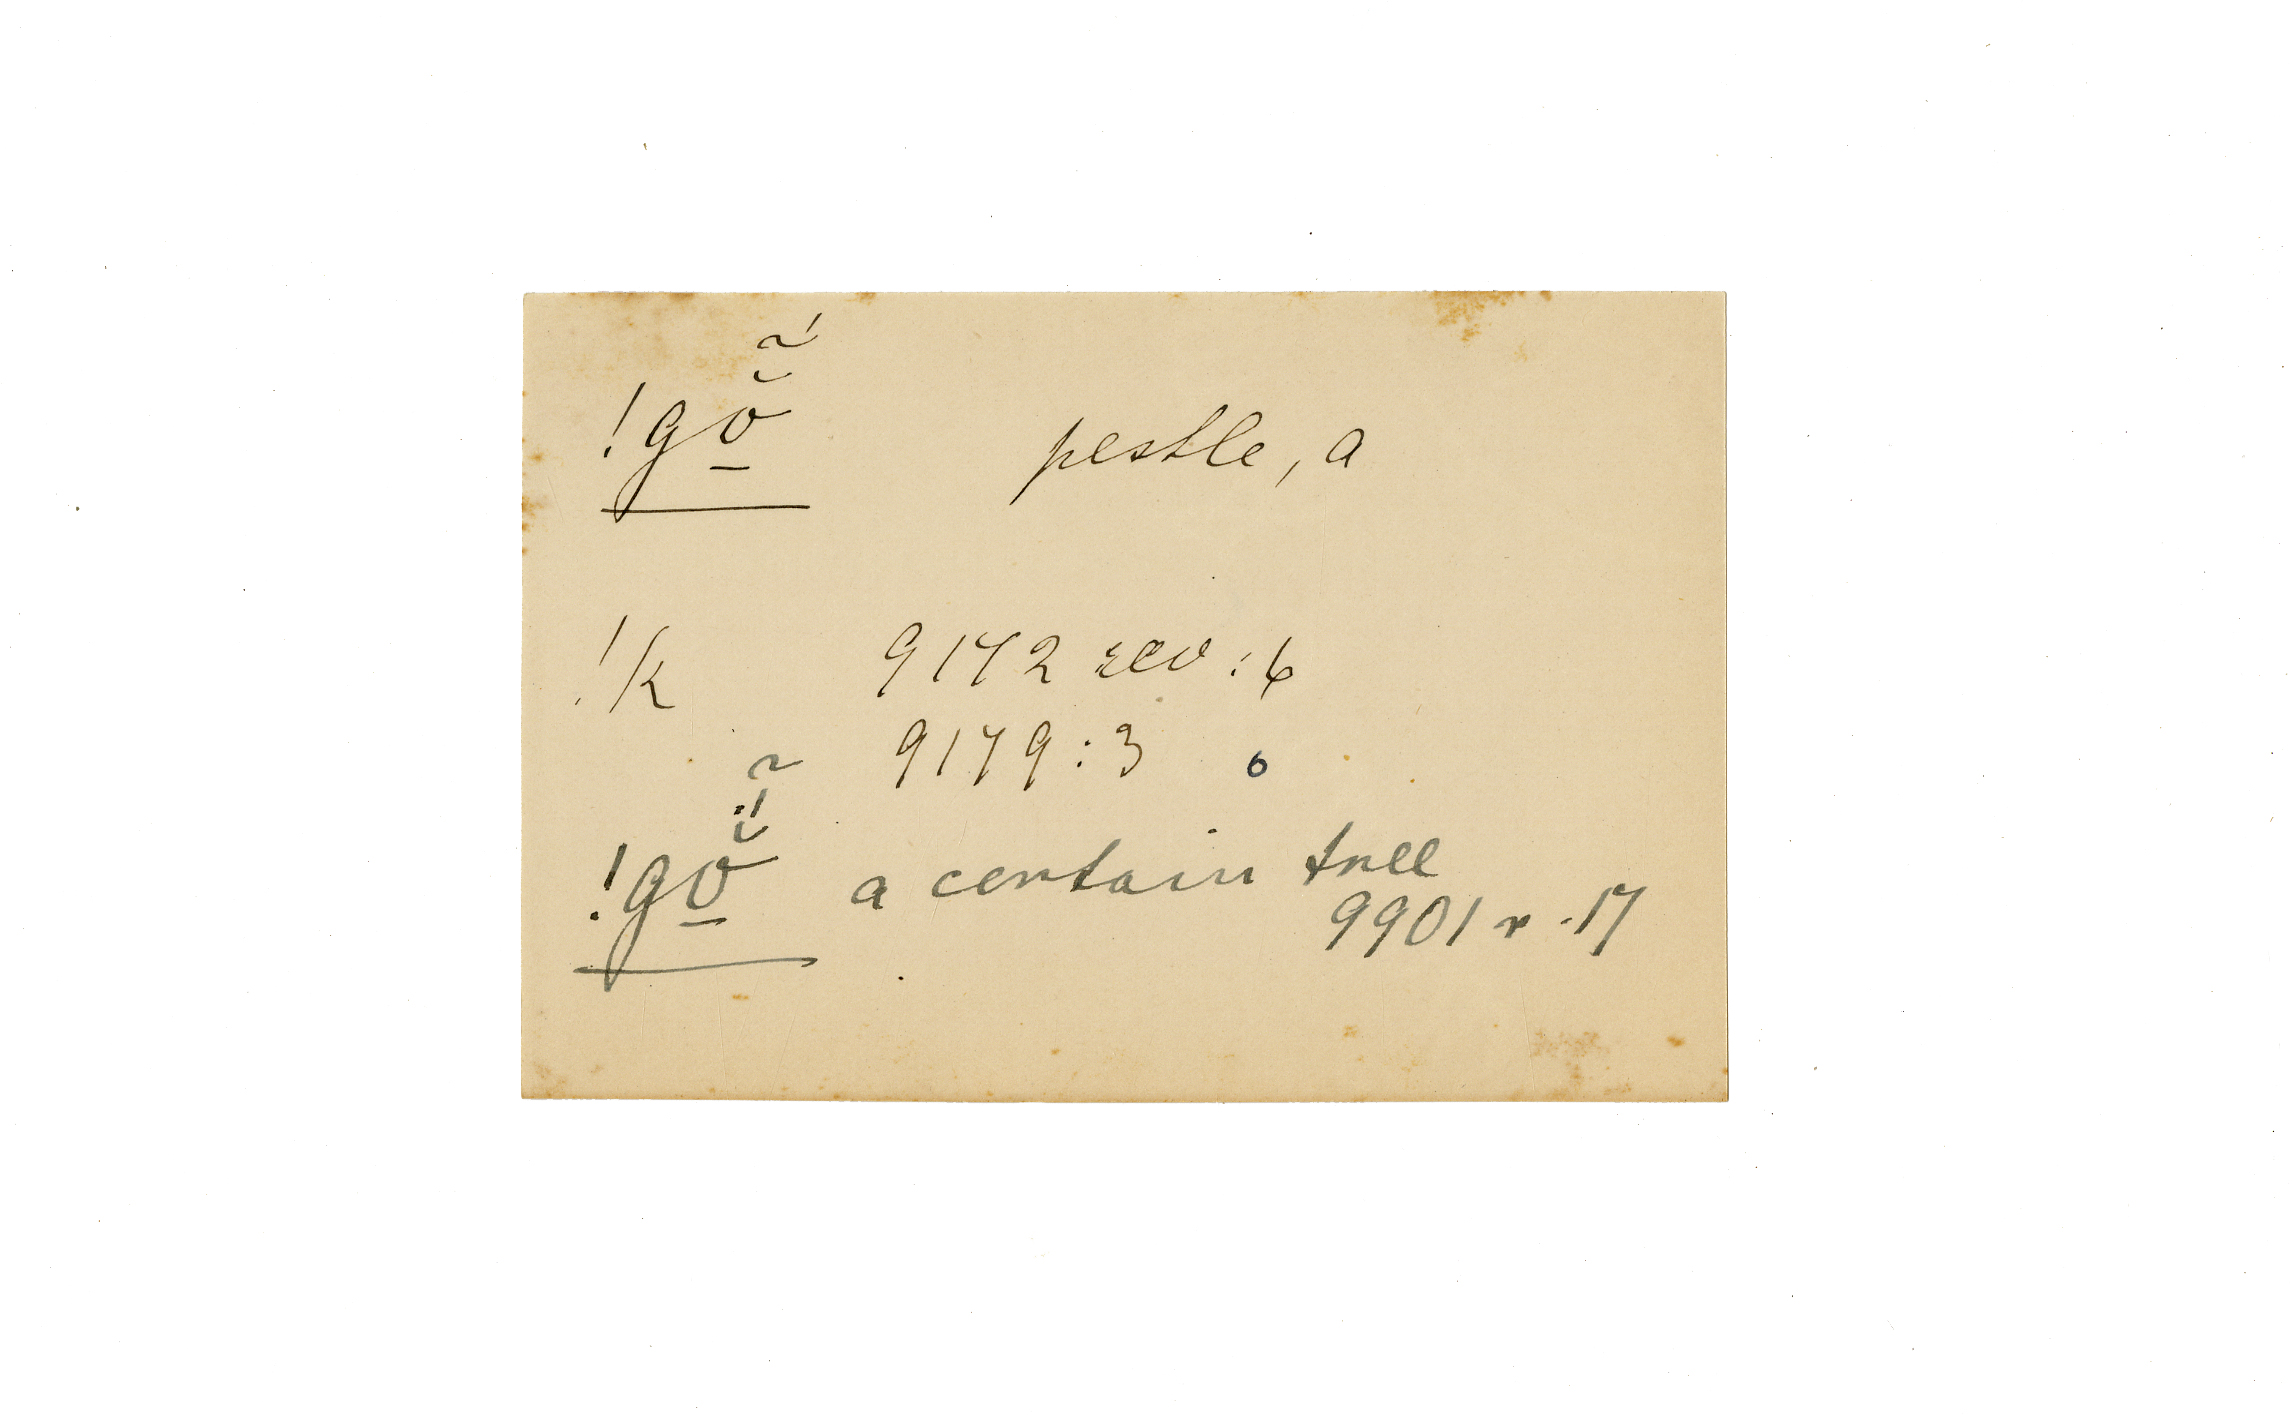 !gṓ̠̆̃ pestle, a
!k 9172 rev :6
9179:3 o
!gṓ̠̆̃ a certain tree
9901 r .17